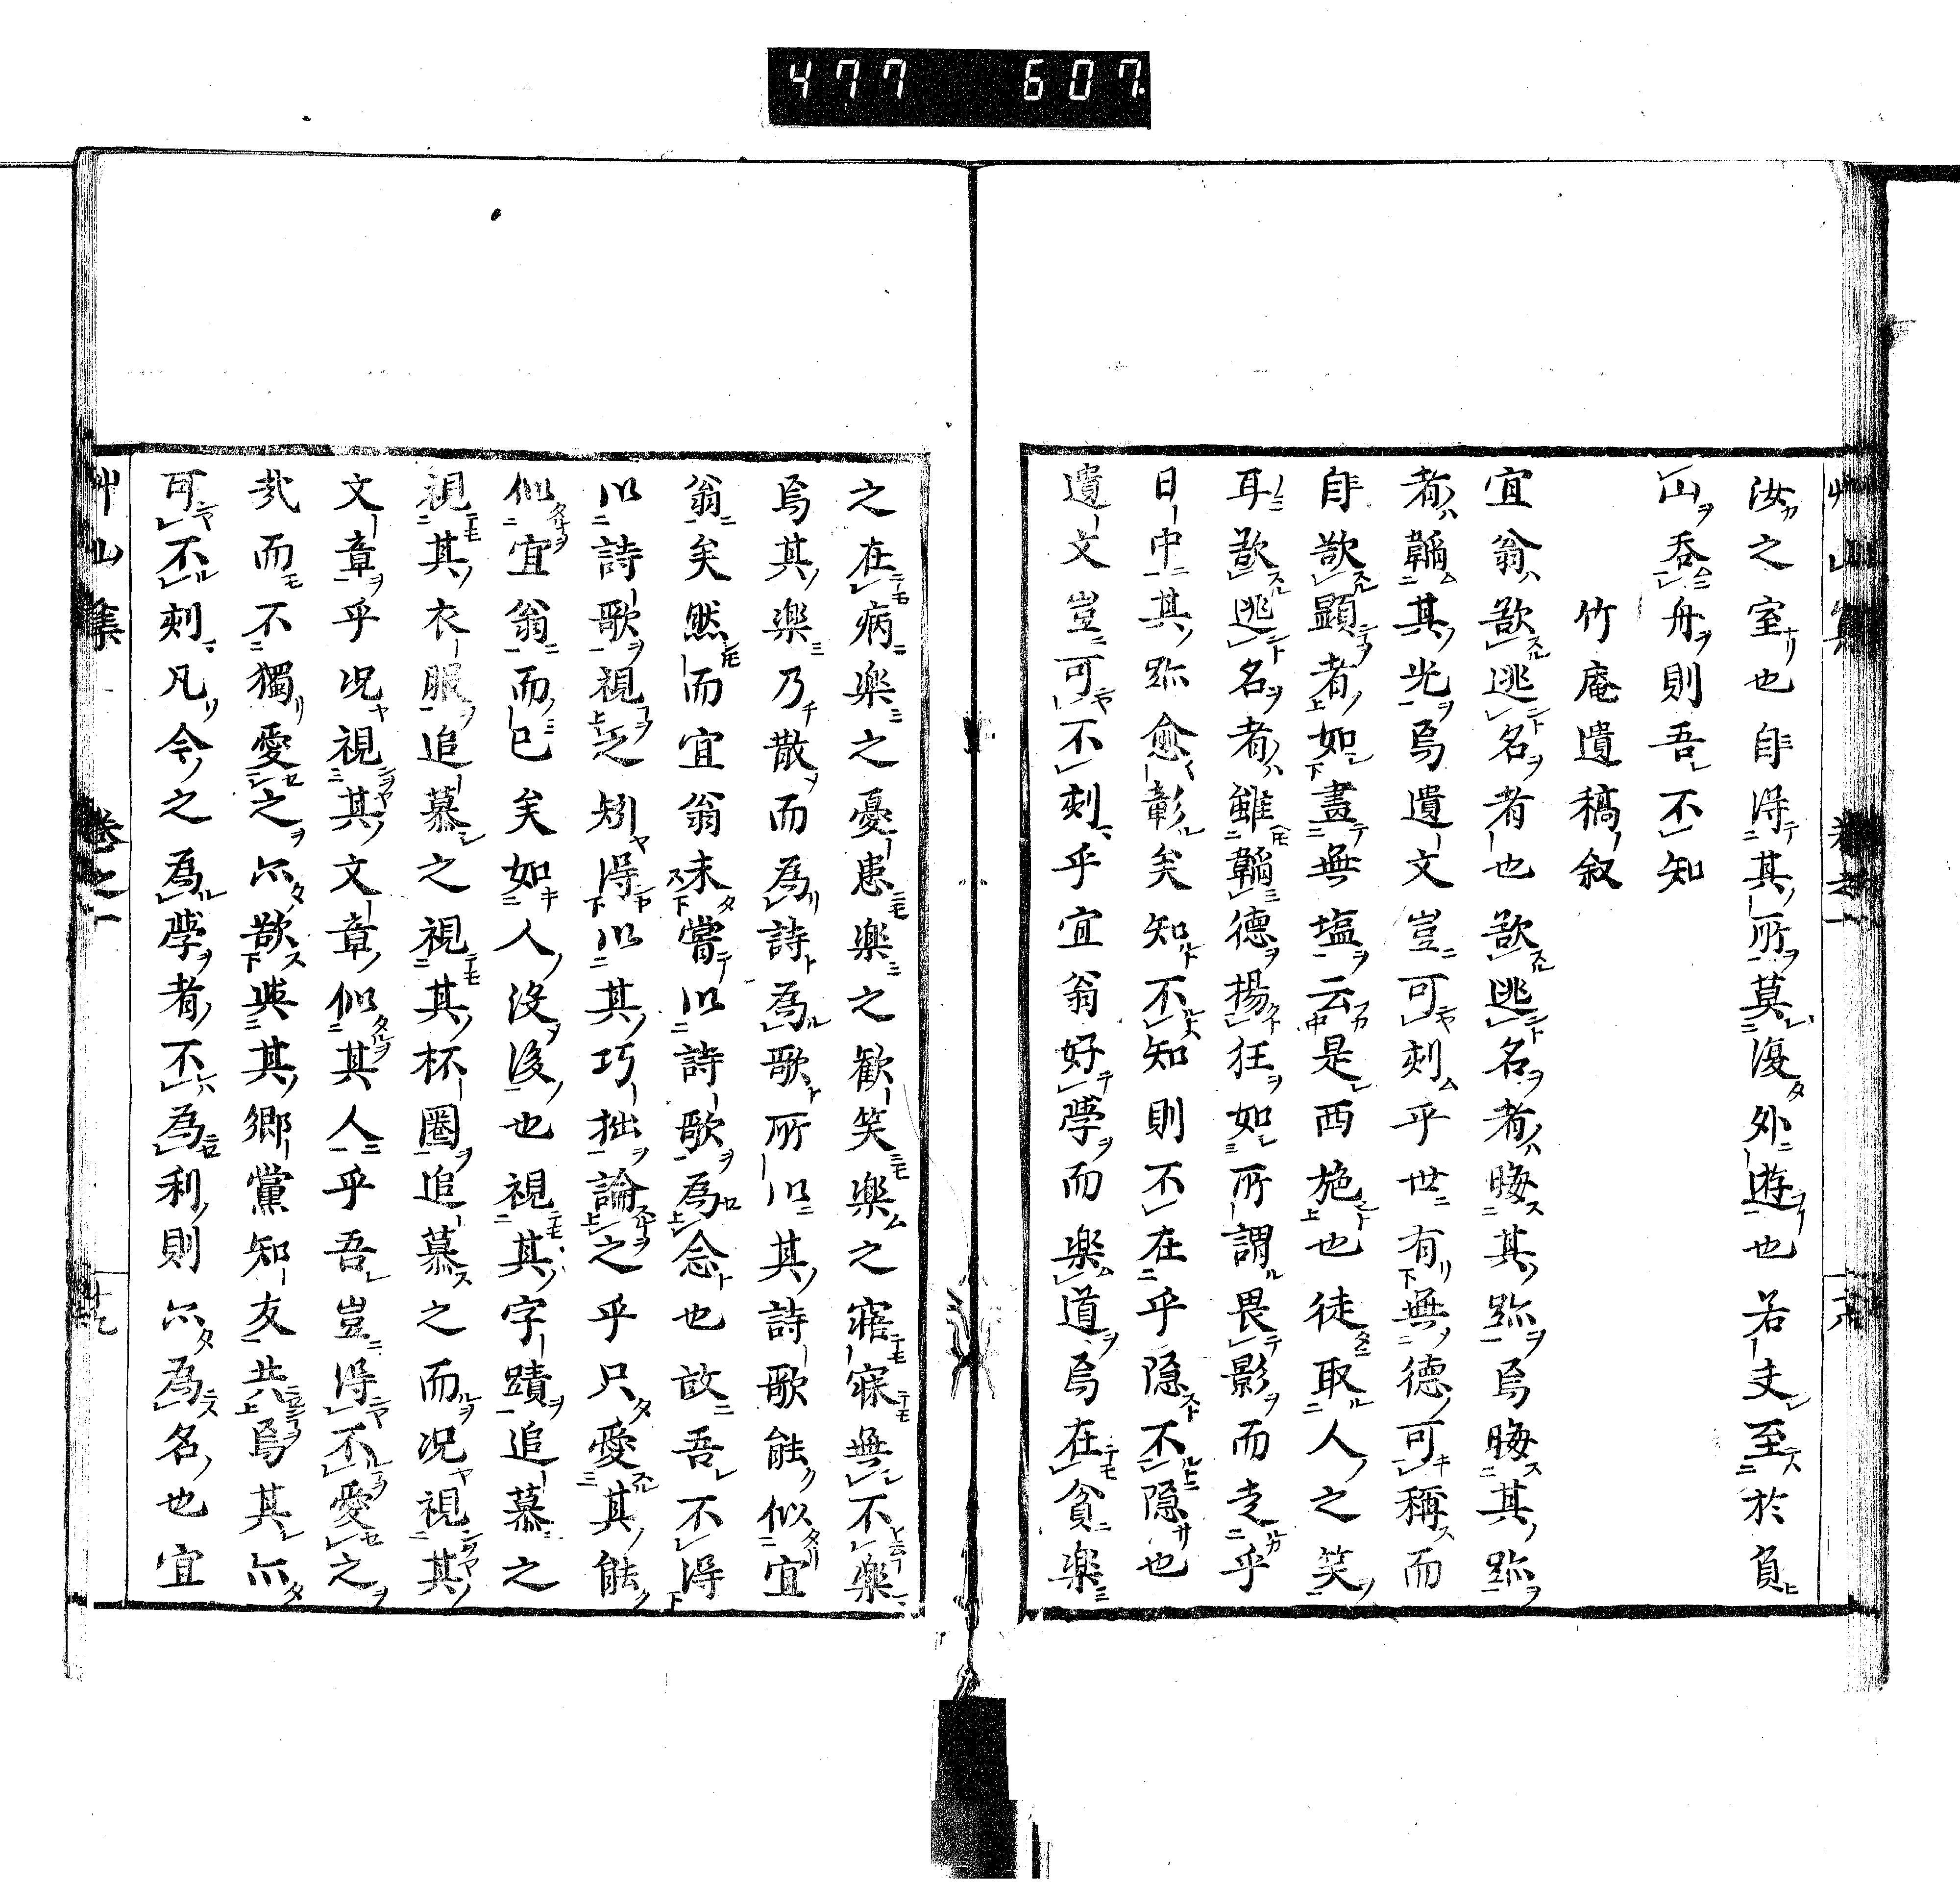 477 607
汝之室也自得其所莫復外遊也若夫至於負
山吞舟則吾不知
竹庵遺稿叙
宜翁欲逃名者也欲逃名者晦其跡焉晦其跡
者韜其光焉遺文豈可刻乎世有無德可稱而
自欲顯者如晝無塩云是西施也徒取人之笑
耳欲逃名者雖韜德揚狂如所謂畏影而走乎
日中其跡愈彰矣知不知則不在乎隐不隐也
遺文豈可不刻乎宜翁好學而樂道焉在貧樂
之在病樂之憂患樂之歡笑樂之寤寐無不樂
焉其樂乃散而為詩為歌所以其詩歌能似宜
翁矣然而宜翁未嘗以詩歌為念也故吾不得
以詩歌視之矧得以其巧拙論之乎只愛其能
似宜翁而已矣如人沒後也視其字蹟追慕之
視其衣服追慕之視其杯圈追慕之而况視其
文章乎况視其文章似其人乎吾豈得不愛之
哉而不獨愛之亦欲與其鄉黨知友共焉其亦
可不刻凡今之為學者不為利則亦為名也宜
艸山集 卷之一